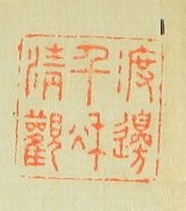 渡邊
千秋
清觀